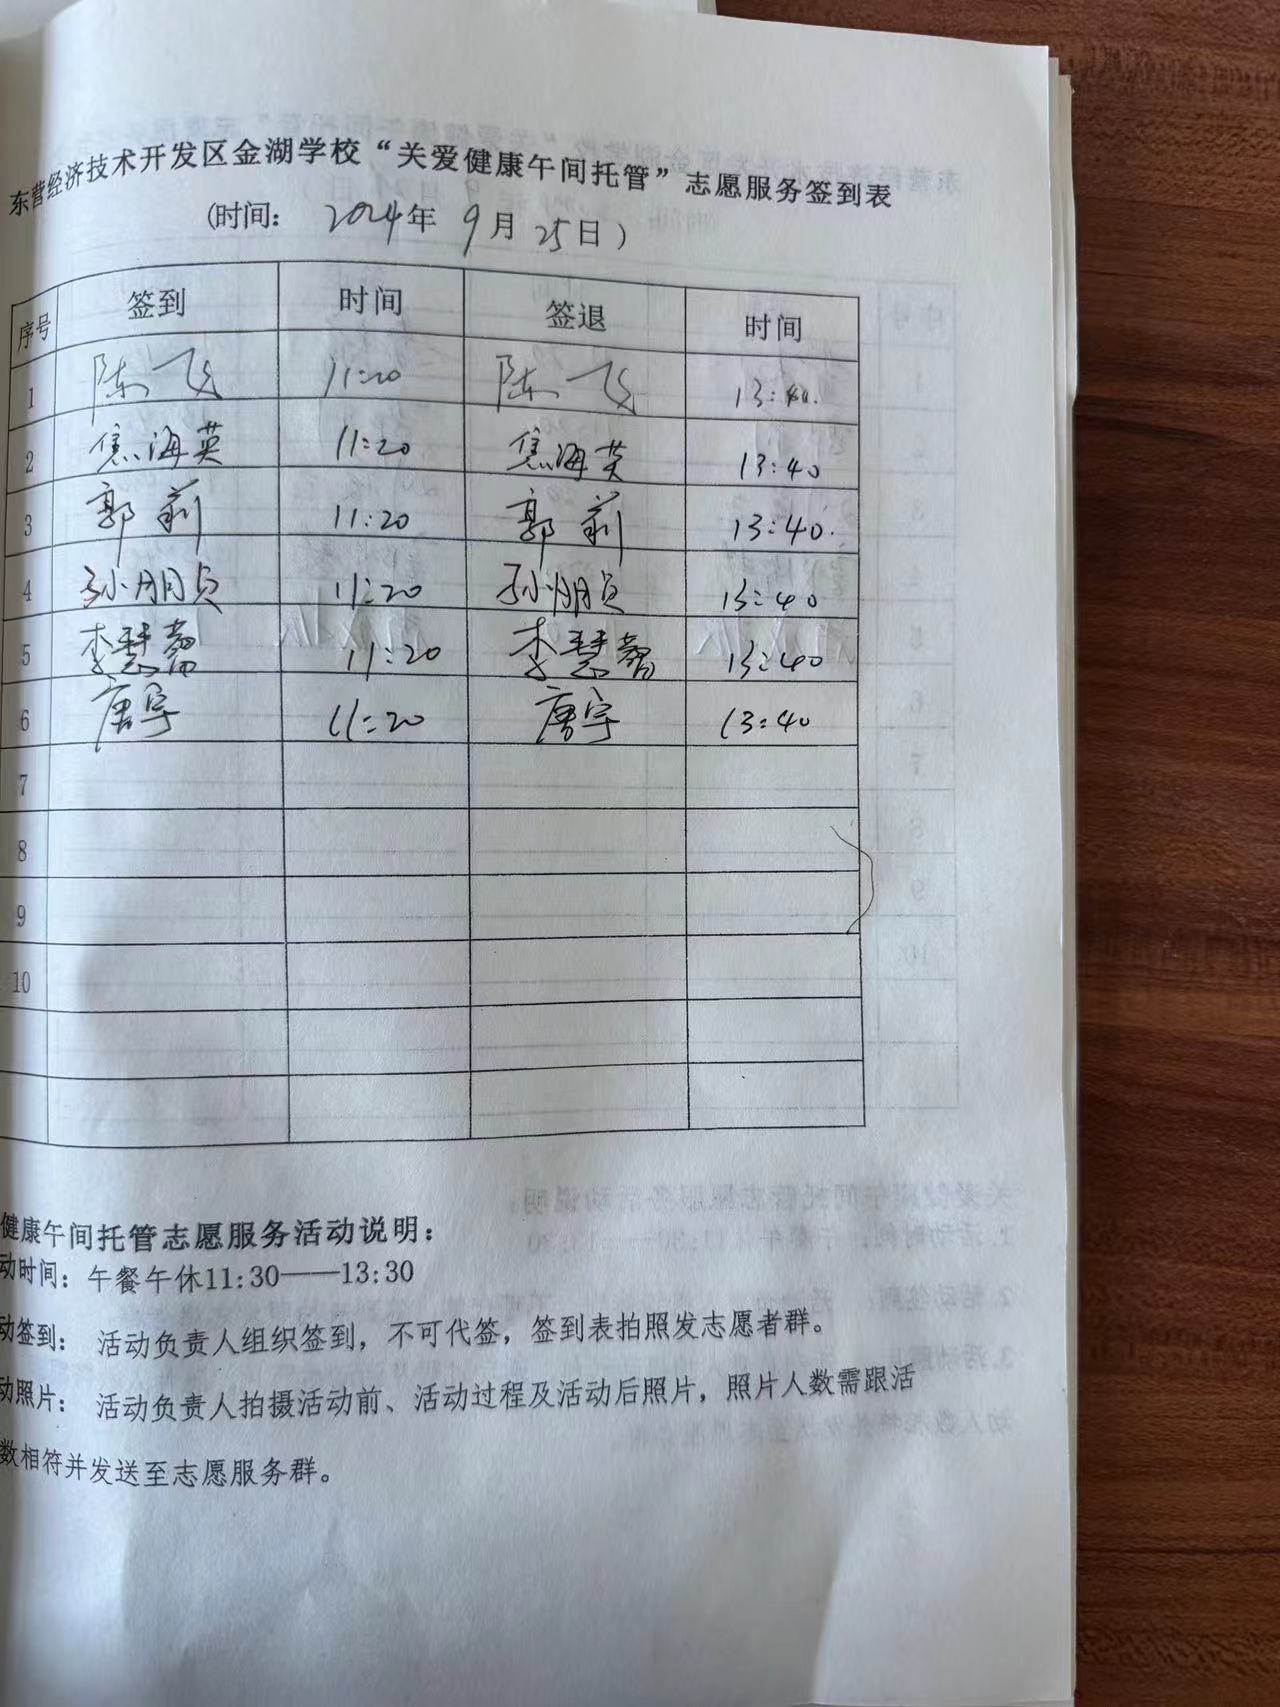 东营经济技术开发区金湖学校“关爱健康午间托管”志愿服务签到表
(时间: 2024年 9月 25日)
序号 签到 时间 签退 时间
1 陈飞 11:20 陈飞 13:40.
2 焦海英 11:20 焦海英 13:40
3 郭莉 11:20 郭莉 13:40.
4 孙朋贞 11:20 孙朋贞 13:40
5 李慧 11:20 李慧 13:40
6 唐宇 11:20 唐宇 13:40
7
8
9
10
健康午间托管志愿服务活动说明:
动时间: 午餐午休11:30——13:30
动签到: 活动负责人组织签到, 不可代签, 签到表拍照发志愿者群。
动照片: 活动负责人拍摄活动前、活动过程及活动后照片, 照片人数需跟活
数相符并发送至志愿服务群。